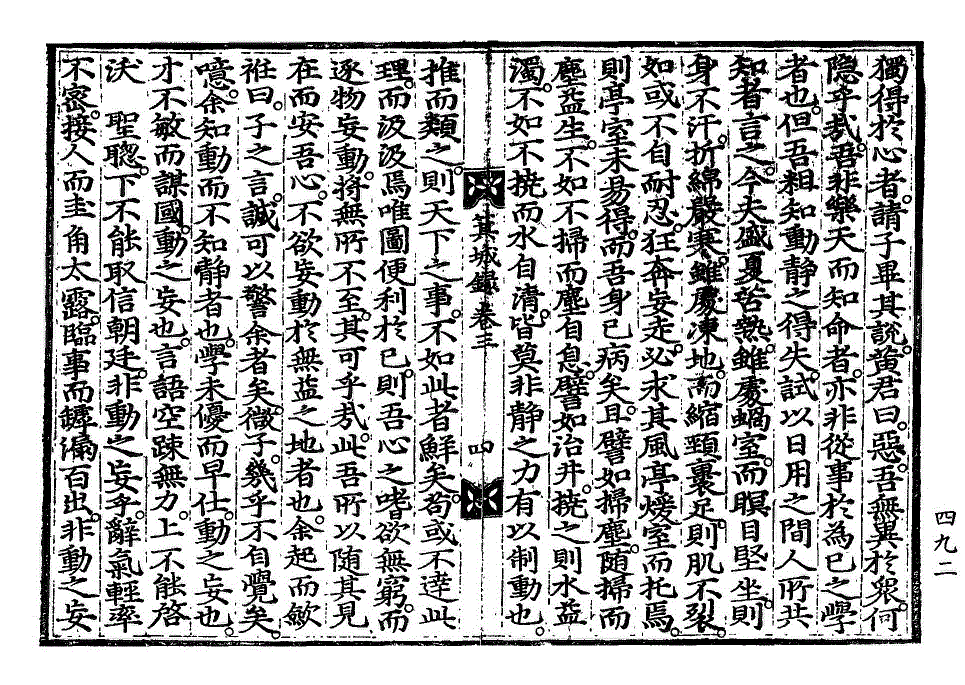 獨得於心者。請子畢其說。黃君曰。惡。吾無異於衆。何
隱乎哉。吾非樂天而知命者。亦非從事於爲己之學
者也。但吾粗知動靜之得失。試以日用之間人所共
知者言之。今夫盛夏苦熱。雖處蝸室。而瞑目堅坐。則
身不汗。折綿嚴寒。雖處凍地。而縮頸裹足。則肌不裂。
如或不自耐忍。狂奔妄走。必求其風亭燠室而托焉。
則亭室未易得。而吾身已病矣。且譬如掃塵。隨掃而
塵益生。不如不掃而塵自息。譬如治井。撓之則水益
濁。不如不撓而水自淸。皆莫非靜之力有以制動也。
箕城錄卷三
四
推而類之。則天下之事。不如此者鮮矣。苟或不達此
理。而汲汲焉唯圖便利於己。則吾心之嗜欲無窮。而
逐物妄動。將無所不至。其可乎哉。此吾所以隨其見
在而安吾心。不欲妄動於無益之地者也。余起而斂
袵曰。子之言。誠可以警余者矣。微子。幾乎不自覺矣。
噫。余知動而不知靜者也。學未優而早仕。動之妄也。
才不敏而謀國。動之妄也。言語空疎無力。上不能啓
沃 聖聰。下不能取信朝廷。非動之妄乎。辭氣輕率
不密。接人而圭角太露。臨事而罅漏百出。非動之妄
四九二